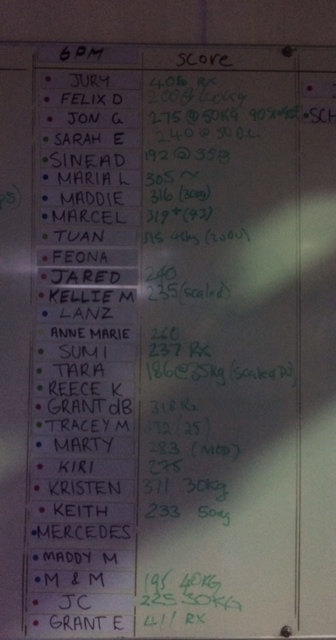 6PM SCORE
JURY 406 RX
FELIX D
JON G 275 @ 50KG
SARAH E
SINEAD 192 @ 35
MARIA L 305
MADDIE 316 (30kg)
MARCEL 319+ (43)
TUAN
FEONA
JARED 240
KELLIE M 235 (scaled)
LANZ
ANNE MARIE 260
SUMI 237 RX
TARA 186 @ 35kg (scaled)
REECE K
GRANT dB 318 Rx
TRACEY M
MARTY 283 (MOD)
KIRI 275
KRISTEN 371 30kg
KEITH 233 50kg
MERCEDES
MADDY M
M & M 195 40KG
JC 225 50KG
GRANT E 411 RX